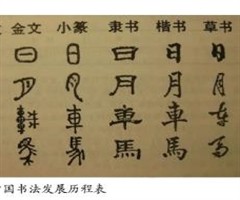 金文 小篆 隶书 楷书 草书
日 日 日 日 日
月 月 月 月 月
車 車 車 車 車
馬 馬 馬 馬 馬
国书法发展历程表